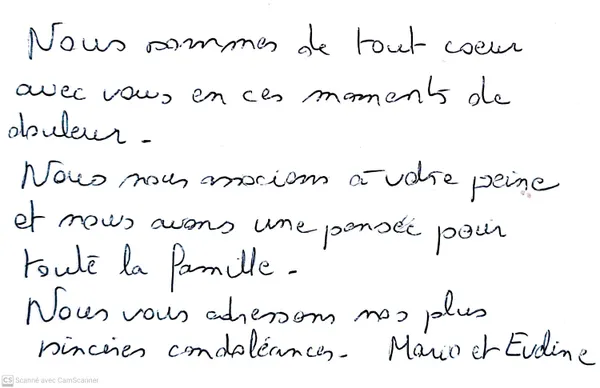 Nous sommes de tout coeur
avec vous en ces moments de
douleur.
Nous nous associons à votre peine
et nous avons une pensée pour
toute la famille.
Nous vous adressons nos plus
sincères condoléances. Mario et Evdine
CS Scanné avec CamScanner